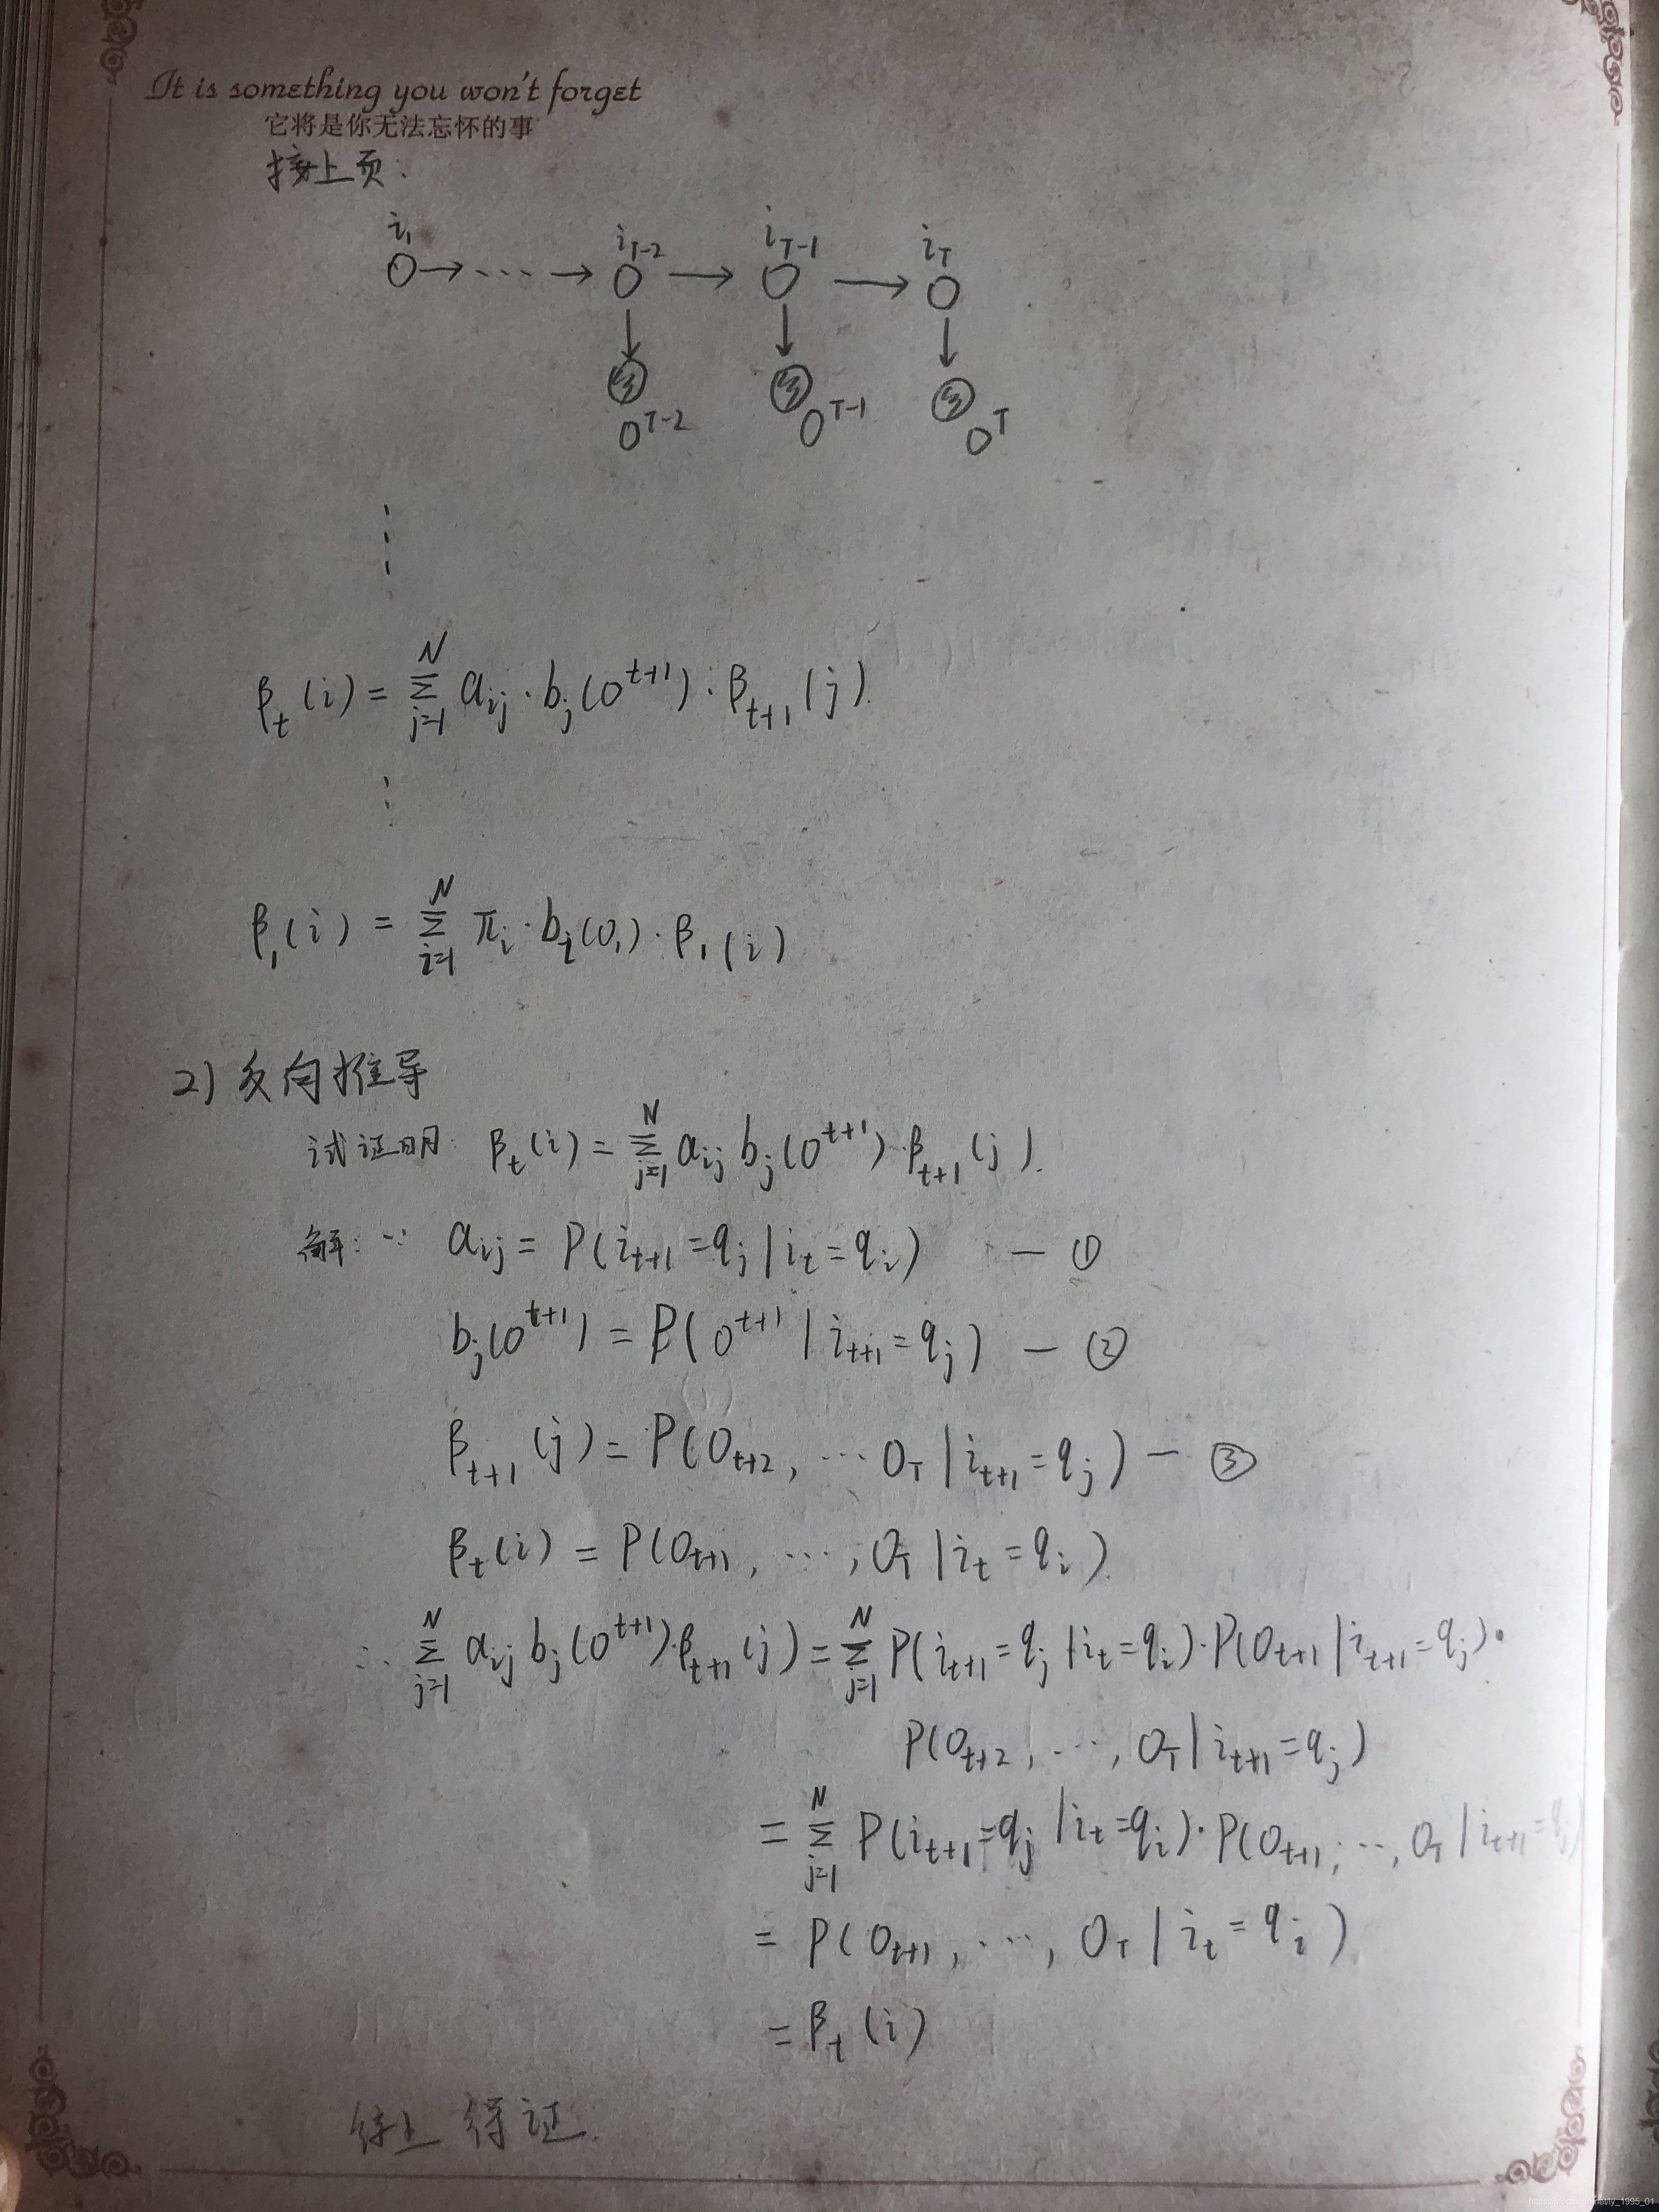 It is something you won't forget
它将是你无法忘怀的事
接上页:
i₁ i_{T-2} i_{T-1} i_T
O → ··· → O → O → O
O^{T-2} O^{T-1} O^T
β_t(i) = Σ_{j=1}^{N} a_{ij} · b_j(O^{t+1}) · β_{t+1}(j).
β₁(i) = Σ_{i=1}^{N} π_i · b_i(O₁) · β₁(i)
2) 反向推导
试证明: β_t(i) = Σ_{j=1}^{N} a_{ij} b_j(O^{t+1}) · β_{t+1}(j).
解: ∵ a_{ij} = P(i_{t+1} = q_j | i_t = q_i) — ①
b_j(O^{t+1}) = P(O^{t+1} | i_{t+1} = q_j) — ②
β_{t+1}(j) = P(O_{t+2}, ··· O_T | i_{t+1} = q_j) — ③
β_t(i) = P(O_{t+1}, ···, O_T | i_t = q_i).
∴ Σ_{j=1}^{N} a_{ij} b_j(O^{t+1}) · β_{t+1}(j) = Σ_{j=1}^{N} P(i_{t+1} = q_j | i_t = q_i) · P(O_{t+1} | i_{t+1} = q_j) ·
P(O_{t+2}, ···, O_T | i_{t+1} = q_j)
= Σ_{j=1}^{N} P(i_{t+1} = q_j | i_t = q_i) · P(O_{t+1}, ···, O_T | i_{t+1} = q_j)
= P(O_{t+1}, ···, O_T | i_t = q_i)
= β_t(i)
综上 得证.